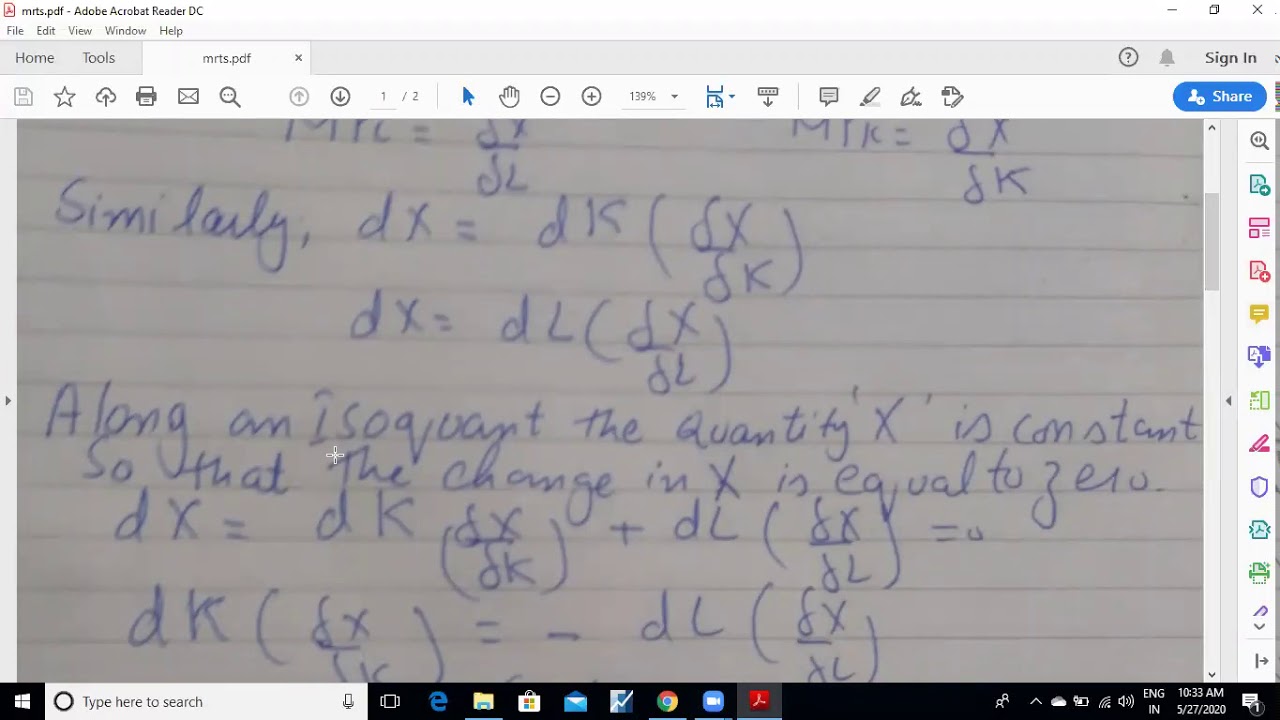 mrts.pdf - Adobe Acrobat Reader DC
File Edit View Window Help
Home Tools mrts.pdf ×
Sign In
1 / 2 139% Share
MPL = δX/δL MPK = δX/δK
Similarly, dX = dK (δX/δK)
dX = dL (δX/δL)
Along an isoquant the quantity 'X' is constant
So that the change in X is equal to zero.
dX = dK (δX/δK) + dL (δX/δL) = 0
dK (δX/δK) = - dL (δX/δL)
Type here to search
ENG 10:33 AM
IN 5/27/2020
1